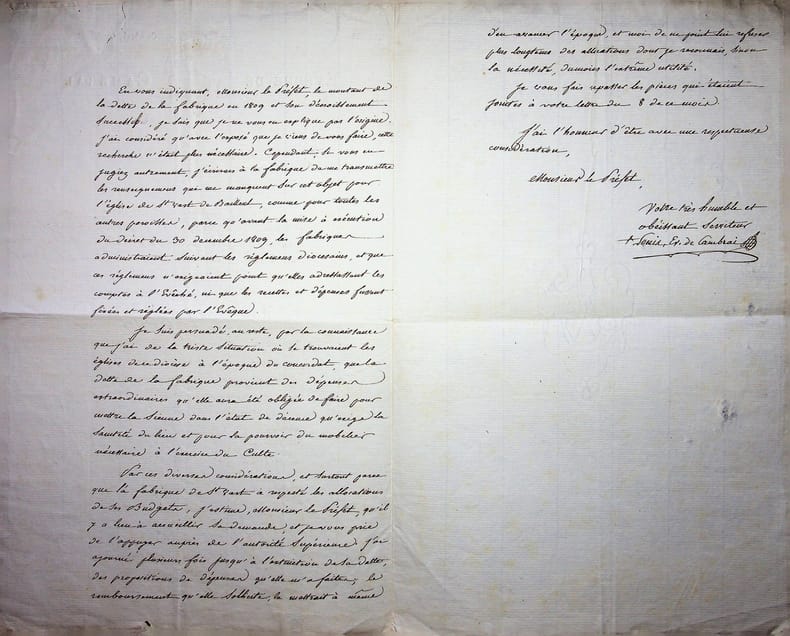 En vous indiquant, Monsieur le Préfet, le montant de
la dette de la fabrique en 1809 et son décroissement
successif, je sais que je ne vous en explique pas l'origine.
J'ai considéré qu'avec l'exposé que je viens de vous faire, cette
recherche n'était plus nécessaire. Cependant, si vous en
jugiez autrement, j'écrirais à la fabrique de me transmettre
les renseignemens qui me manquent sur cet objet pour
l'église de St Vast de Bailleul, comme pour toutes les
autres paroisses, parce qu'avant la mise à exécution
du décret du 30 décembre 1809, les fabriques
administraient suivant les règlemens diocésains, et que
ces règlemens n'exigeaient point qu'elles adressassent les
comptes à l'Evêché, ni que les recettes et dépenses fussent
fixées et réglées par l'Evêque.
Je suis persuadé, au reste, par la connaissance
que j'ai de la triste situation où se trouvaient les
églises de ce diocèse à l'époque du concordat, que la
dette de la fabrique provient des dépenses
extraordinaires qu'elle aura été obligée de faire pour
mettre la sienne dans l'état de décence qu'exige la
sainteté du lieu et pour la pourvoir du mobilier
nécessaire à l'exercice du Culte.
Par ces diverses considérations, et surtout parce
que la fabrique de St Vast a respecté les allocations
de ses Budgets, j'estime, Monsieur le Préfet, qu'il
y a lieu à accueillir sa demande, et je vous prie
de l'appuyer auprès de l'autorité Supérieure. J'ai
ajourné plusieurs fois jusqu'à l'extinction de sa dette,
des propositions de dépenses qu'elle m'a faites; le
remboursement qu'elle sollicite, la mettrait à même
d'en avancer l'époque, et moi de ne point lui refuser
plus longtems des allocations dont je reconnais, sinon
la nécessité, dumoins l'extrême utilité.
Je vous fais repasser les pièces qui étaient
jointes à votre lettre du 8 de ce mois.
J'ai l'honneur d'être avec une respectueuse
considération,
Monsieur le Préfet,
Votre très humble et
obéissant Serviteur
† Louis, Ev. de Cambrai